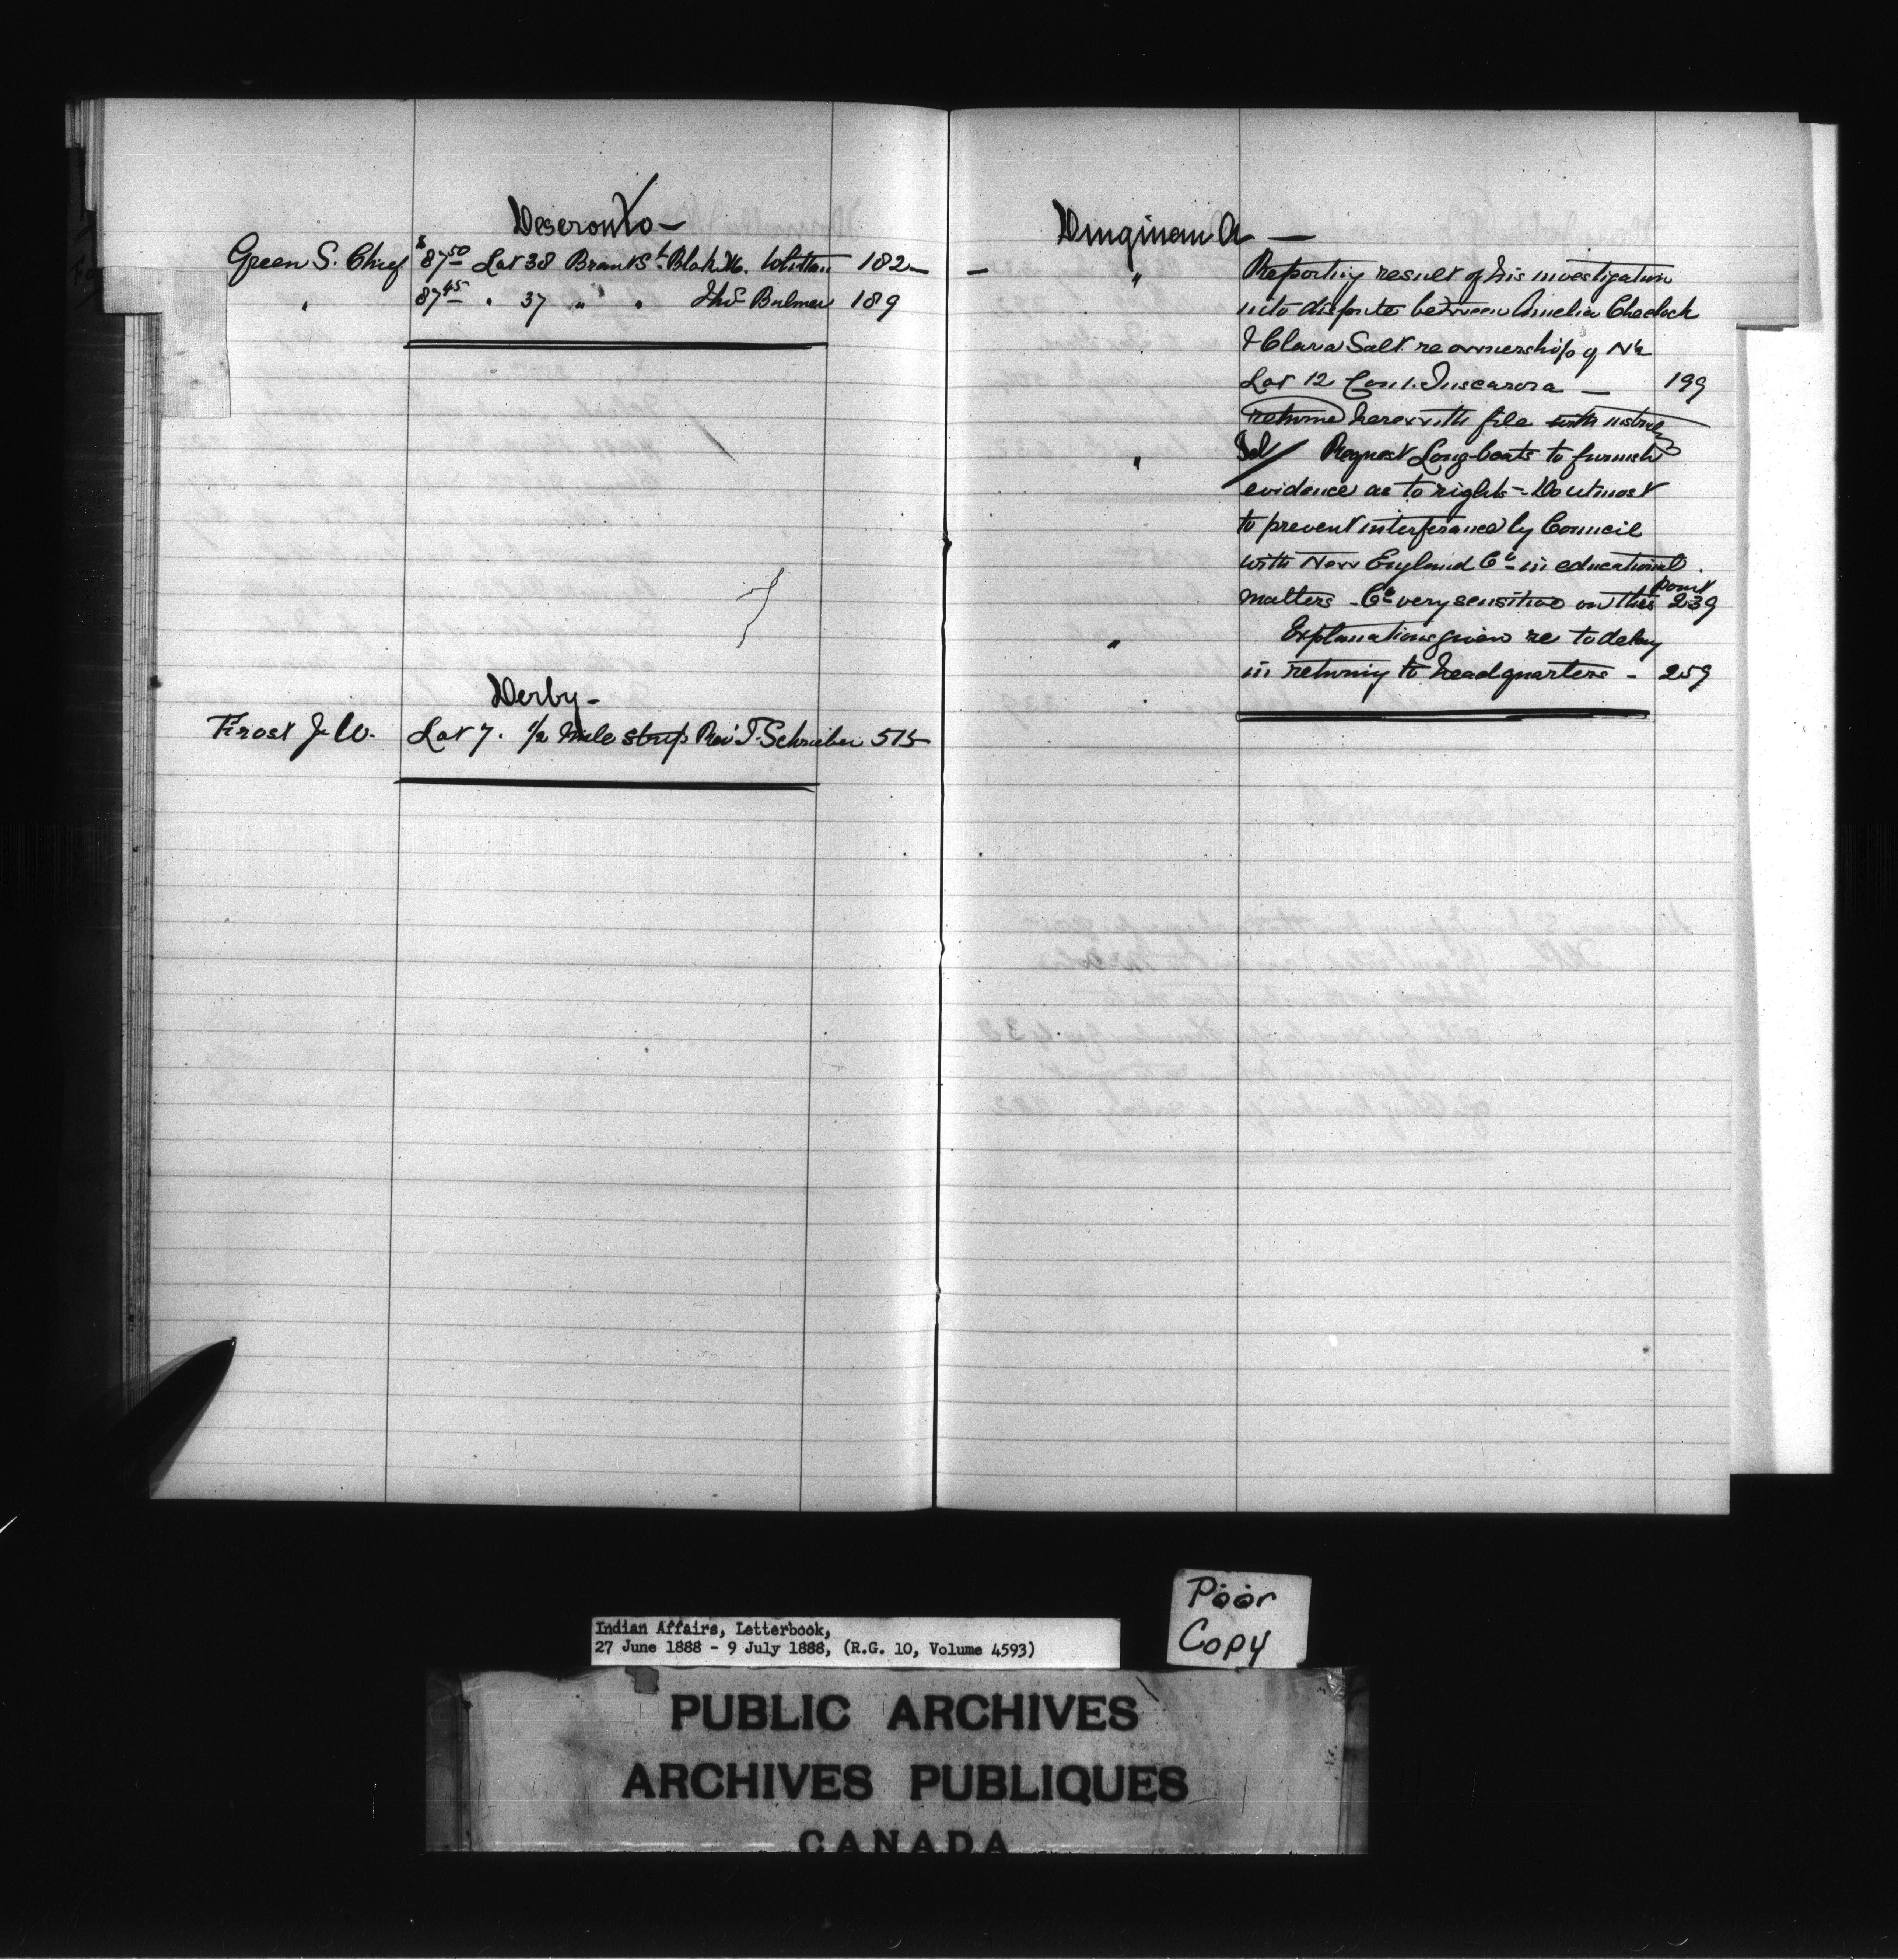 Deseronto -
Green S. Chief $87.50 Lot 38 Brant St. 182 -
" 87.45 " 37 " " " Thos Bulmer 189
Derby -
Frost J. W. Lot 7. 1/2 Mile Strip Rev. T. Schrieber 515
Dingman A -
- " Reporting result of his investigation
into dispute between Amelia Chedock
& Clara Salt re ownership of N½
Lot 12 Con 1. Tuscarora - 199
returned herewith file with
" Request Longboats to furnish
evidence as to rights - Do utmost
to prevent interference by Council
with New England Co in educational
matters - Co very sensitive on this point 239
" Explanations given re to delay
in returning to headquarters - 259
Poor
Copy
Indian Affairs, Letterbook,
27 June 1888 - 9 July 1888, (R.G. 10, Volume 4593)
PUBLIC ARCHIVES
ARCHIVES PUBLIQUES
CANADA